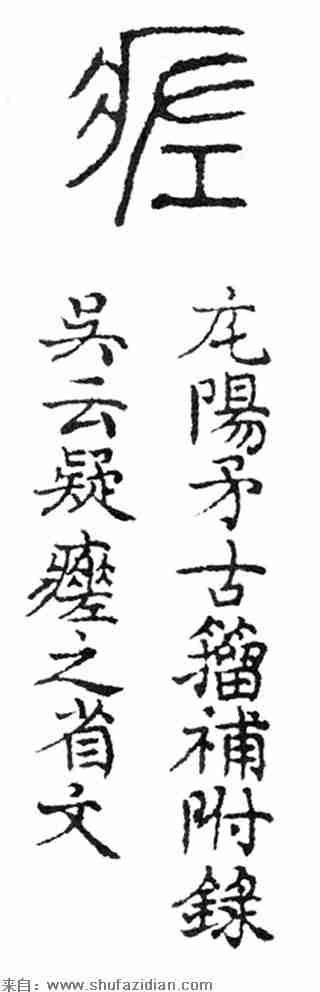 㡯陽矛古籀補附錄
吳云疑之省文
来自：www.shufazidian.com